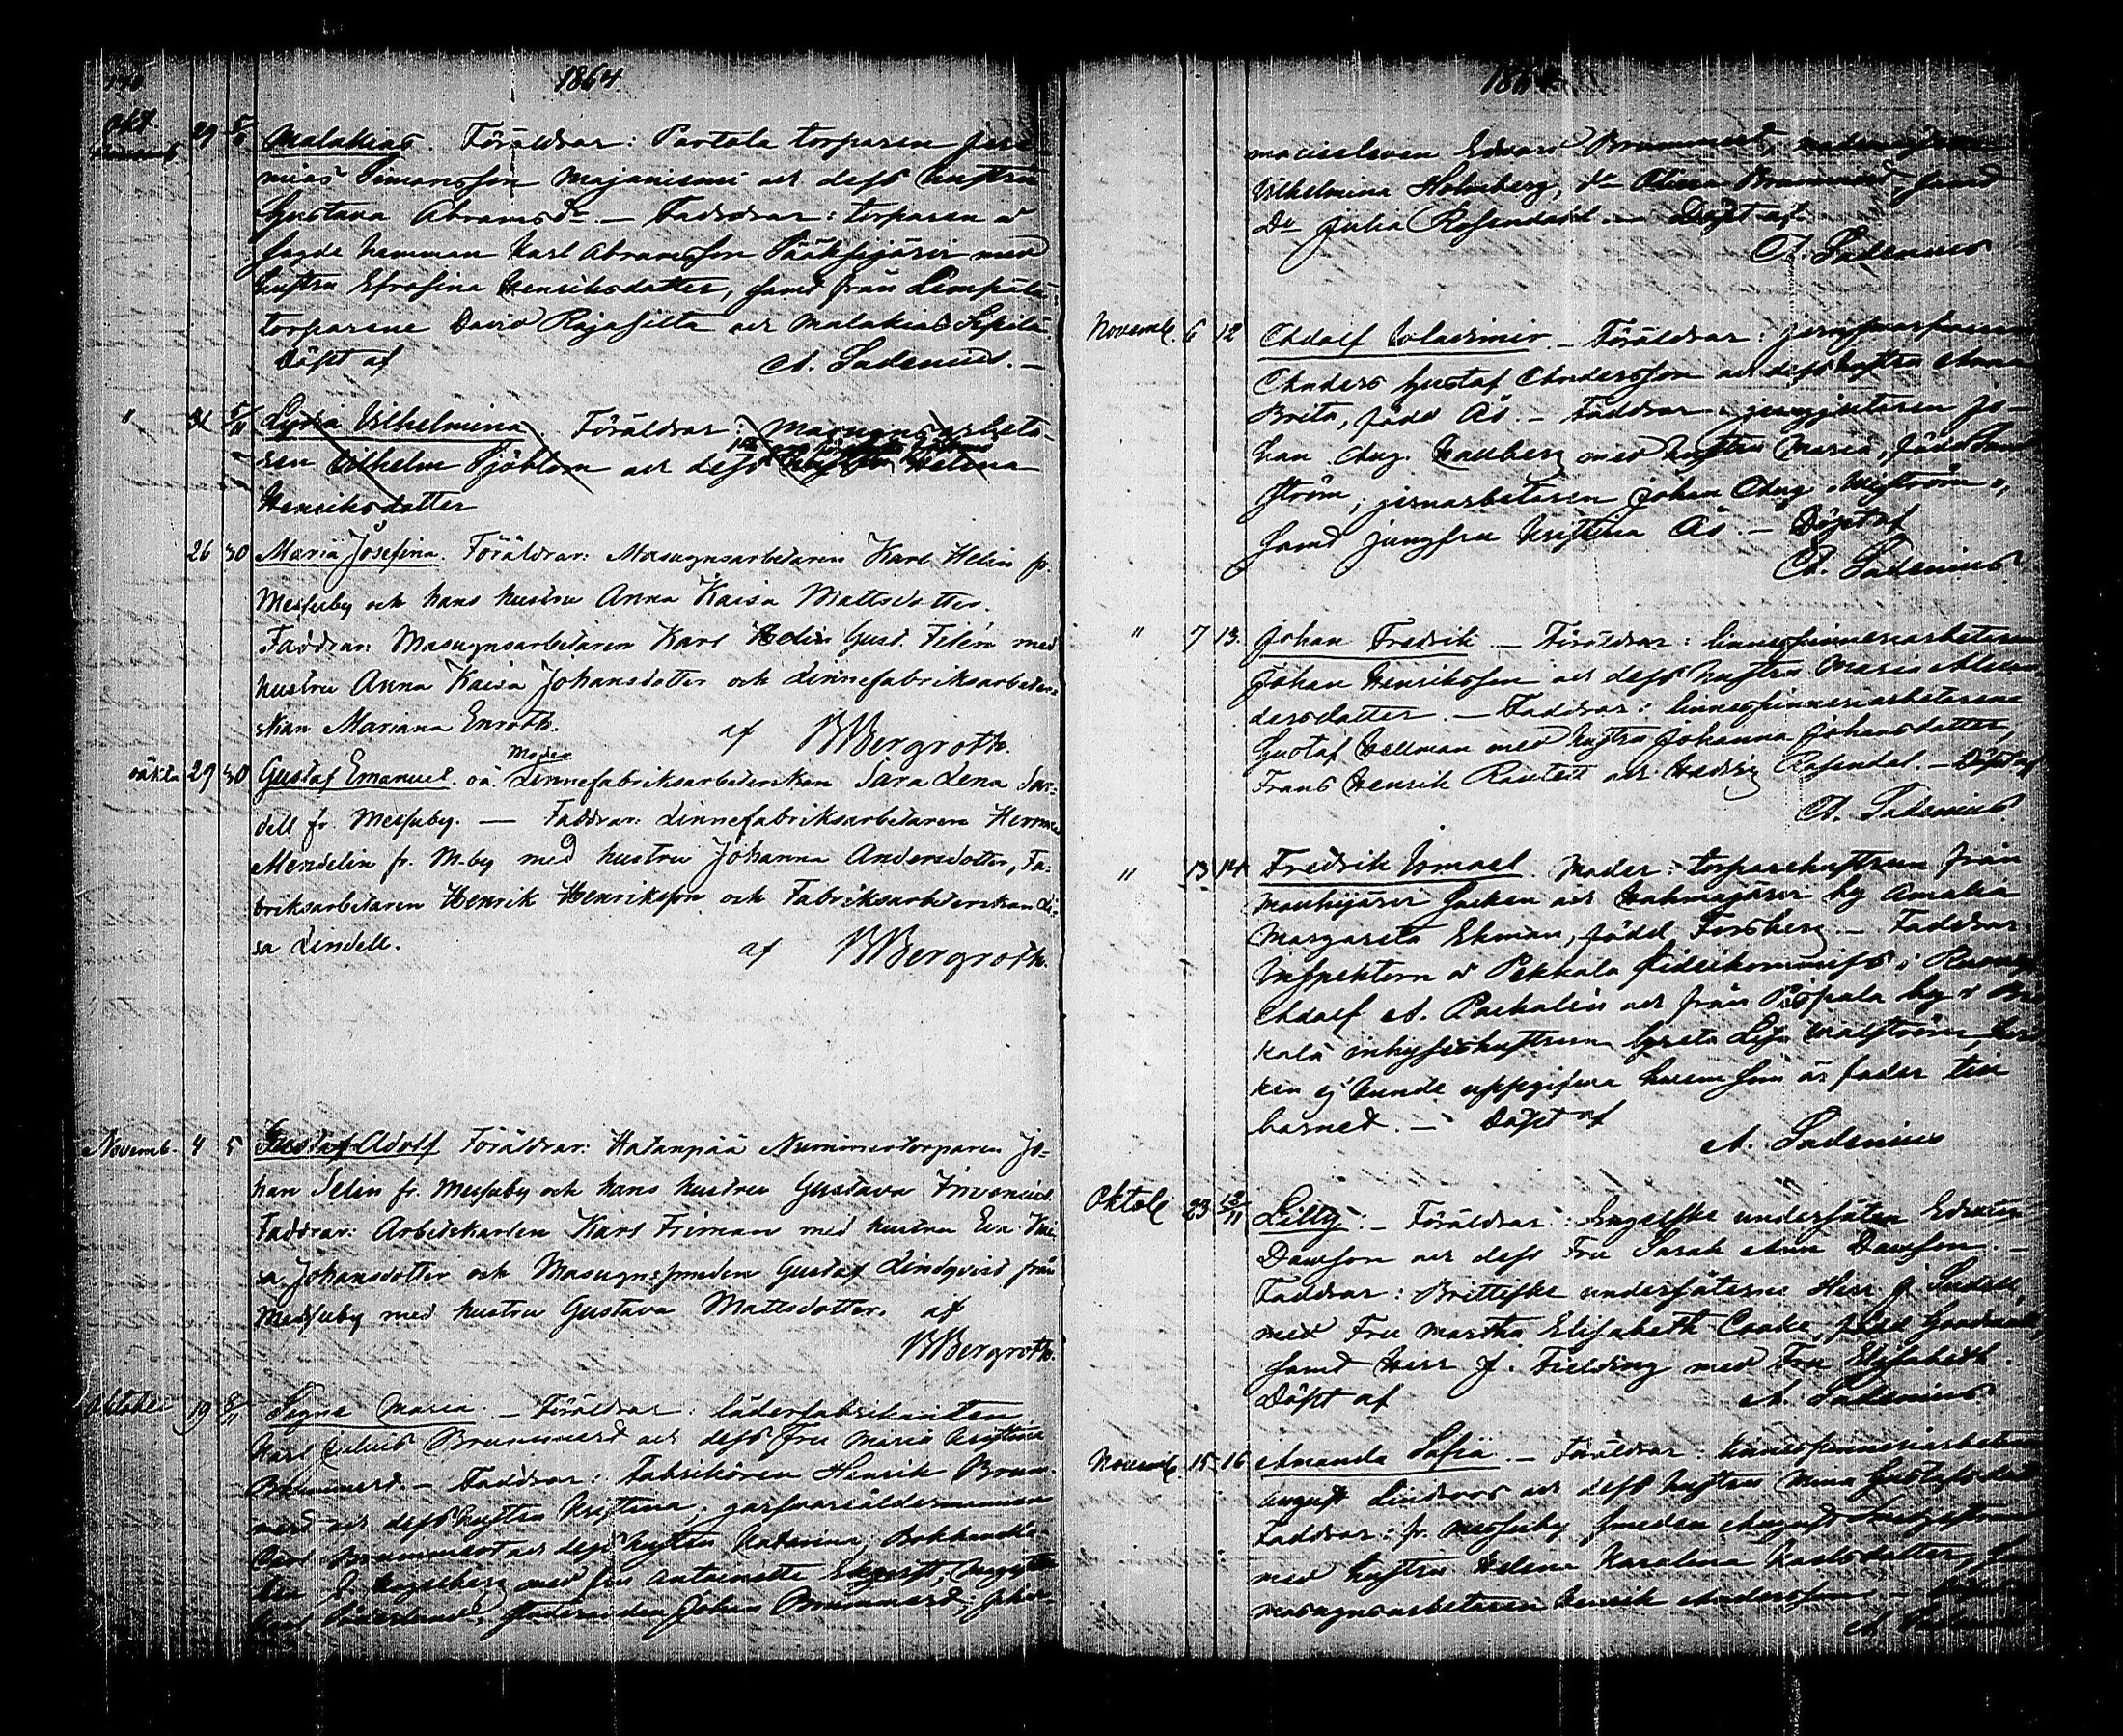 1864.
Okt. 29 5/11 Malakias. Föräldrar: Partola torparen Jere-
mias Simonsson Majaniemi och dess hustru
Gustava Abramsdr. — Faddrar: torparen å
sagde hemman Karl Abramsson Sääksjärvi med
hustru Efrosina Henriksdotter, samt från Lempälä:
torparene David Rajasilta och Malakias Seppilä.
Döpt af A. Ladenius. —
" 31 5/11 Lydia Vilhelmina Föräldrar: Masugnsarbeta-
ren Vilhelm Sjöblom och dess hustru Helena
Henriksdotter
26 30 Maria Josefina. Föräldrar: Masugnsarbetaren Karl Helin fr.
Messuby och hans hustru Anna Kaisa Mattsdotter.
Faddrar: Masugnsarbetaren Karl Gust. Filén med
hustru Anna Kaisa Johansdotter och Linnefabriksarbeter-
skan Mariana Enroth. af BBergroth.
oäkta 29 30 Gustaf Emanuel. oä. Moder Linnefabriksarbeterskan Sara Lena Sar-
dell fr. Messuby. — Faddrar: Linnefabriksarbetaren Herman
Mendelin fr. M-by med hustru Johanna Andersdotter, Fa-
briksarbetaren Henrik Henriksson och Fabriksarbeterskan Li-
sa Lindell. af BBergroth.
Novemb. 4 5 Gustaf Adolf Föräldrar: Hatanpää Nurmimertorparen Jo-
han Selin fr. Messuby och hans hustru Gustava
Faddrar: Arbetskarlen Karl Friman med hustru Eva Kai-
sa Johansdotter och Masugnssmeden Gustaf Lindqvist från
Messuby med hustru Gustava Mattsdotter. af
BBergroth.
Oktobe 19 8/11 Signe Maria. — Föräldrar: läderfabrikanten
Karl Julius Brummerd och dess Fru Maria Kristina
Brummerd. — Faddrar: Fabrikören Henrik Brum-
merd och dess hustru Kristina, garfvareåldermannen
Carl Brummerd och dess hustru Katarina, Bokhand-
J. Hagelberg med fru Antoinette
studeranden Johan Brummerd,
1864.
Edvard Brummerd,
Vilhelmina Holmberg, dr. Brummerd, samt
Dr. Julia Rosendahl — Döpt af
A. Ladenius
Novemb. 6 12 Adolf Wladimir — Föräldrar:
Anders Gustaf Andersson och dess hustru Anna
Brita, född Ås. — Faddrar: jerngjutaren Jo-
han Aug. Hallberg med hustru Maria, född
ström, jernarbetaren Johan Aug.
samt jungfru Kristina Ås — Döpt af
A. Ladenius
" 7 13. Johan Fredrik — Föräldrar: linnespinneriarbetaren
Johan Henriksson och dess hustru Maria Alexan-
dersdotter. — Faddrar: linnespinneriarbetarene
Gustaf Hellman med hustru Johanna Johansdotter,
Frans Henrik och Hedvig Rosendal. — Döpt af
A. Ladenius.
" 13 14 Fredrik Ismael. Moder: torparehustrun från
Mouhijärvi Socken och Hahmajärvi by Amalia
Margareta Ekman, född Forsberg — Faddrar:
Inspektorn å Pekkala fideikommiss i Ruovesi
Adolf A. Packalén och från by i
kala inhyseshustrun Greta Lisa Walström,
ken ej kunde uppgifva hvem som är fader till
barnet. — Döpt af
A. Ladenius
Oktob 23 12/11 Lilly. — Föräldrar: Engelske undersåten Edwin
Dawson och dess Fru Sarah Ann Dawson. —
Faddrar: Brittiske undersåterne Herr J.
med Fru Martha Elisabeth Cooke, född
samt Herr J. Fielding med Fru Elisabeth.
Döpt af A. Ladenius.
Novemb. 15 16 Amanda Sofia. — Föräldrar: linnespinneriarbetaren
August Lindroos och dess hustru Mina
Faddrar: fr. Messuby smeden August
med hustru Helena Karolina Karlsdotter,
masugnsarbetaren Henrik Andersson —
A. Ladenius